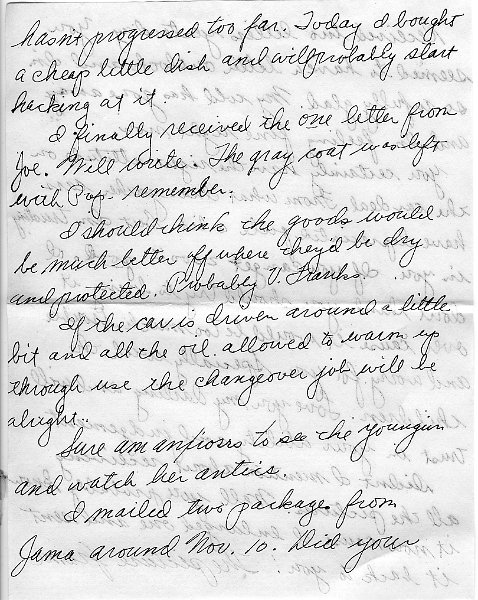 hasnt progressed too far. Today I bought
a cheap little dish and will probably start
hacking at it.
I finally received the one letter from
Joe. Will write. The gray coat was left
with Pop - remember.
I should think the goods would
be much better off where they'd be dry
and protected. Probably V. Franks.
If the car is driven around a little
bit and all the oil allowed to warm up
through use the changeover job will be
alright.
Sure am anxiorrs to see the youngin
and watch her antics.
I mailed two package from
Jama around Nov. 10. Did your